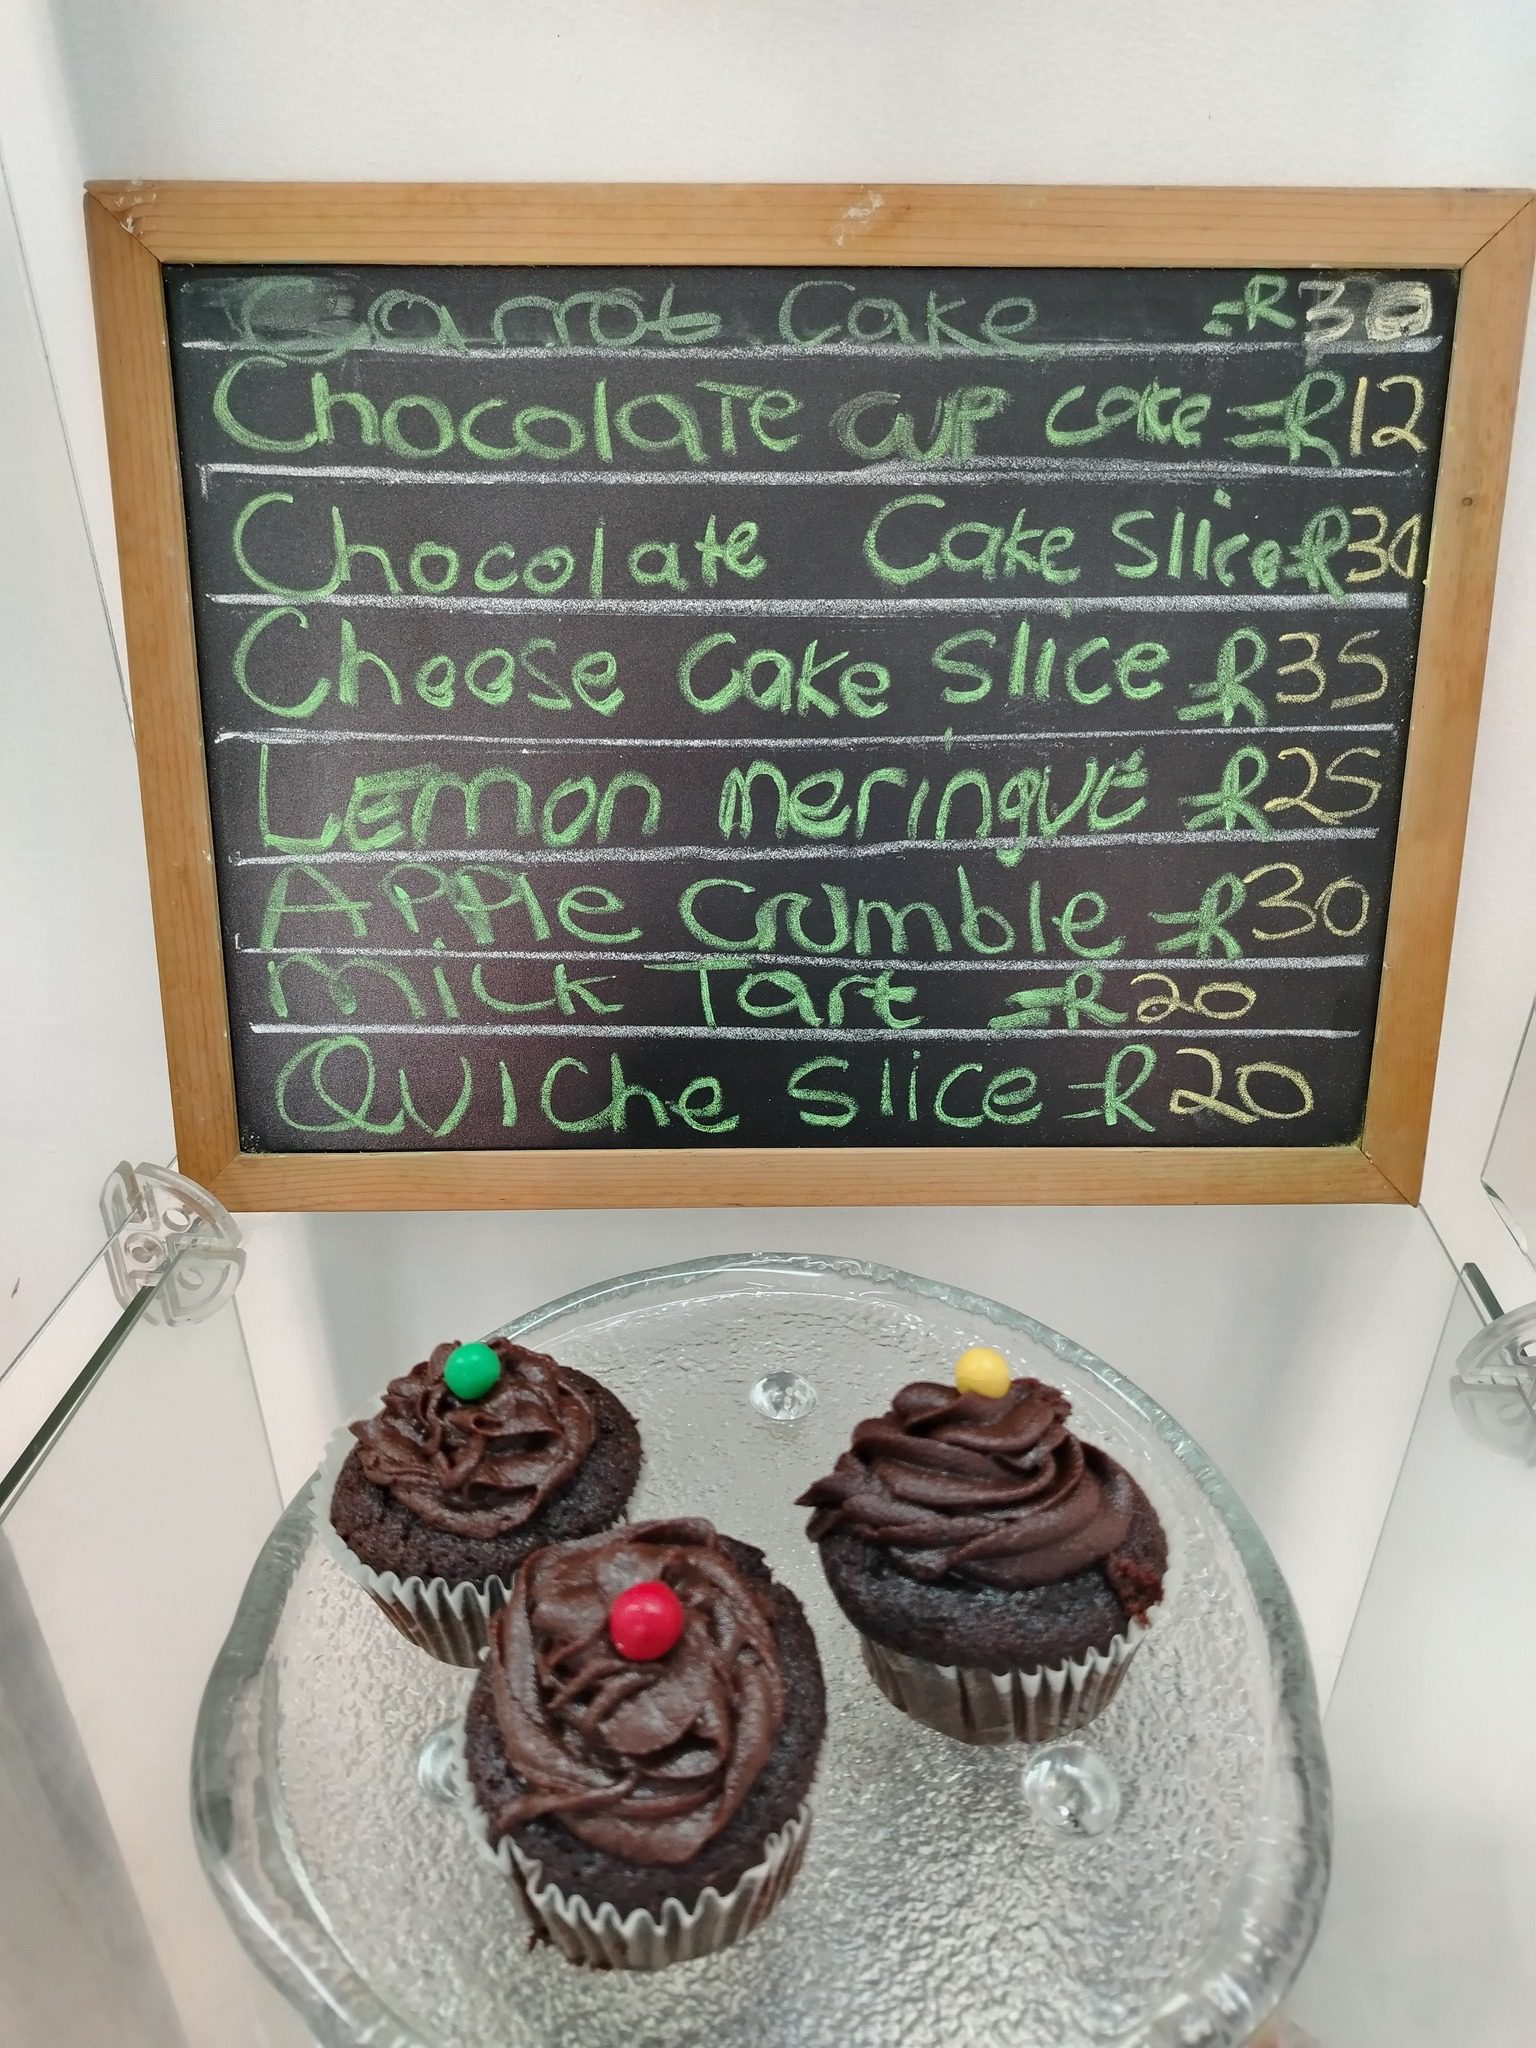 Carrot Cake =R30
Chocolate cup cake =R12
Chocolate Cake Slice =R30
Cheese Cake Slice =R35
Lemon meringue =R25
Apple Crumble =R30
Milk Tart =R20
Quiche Slice =R20